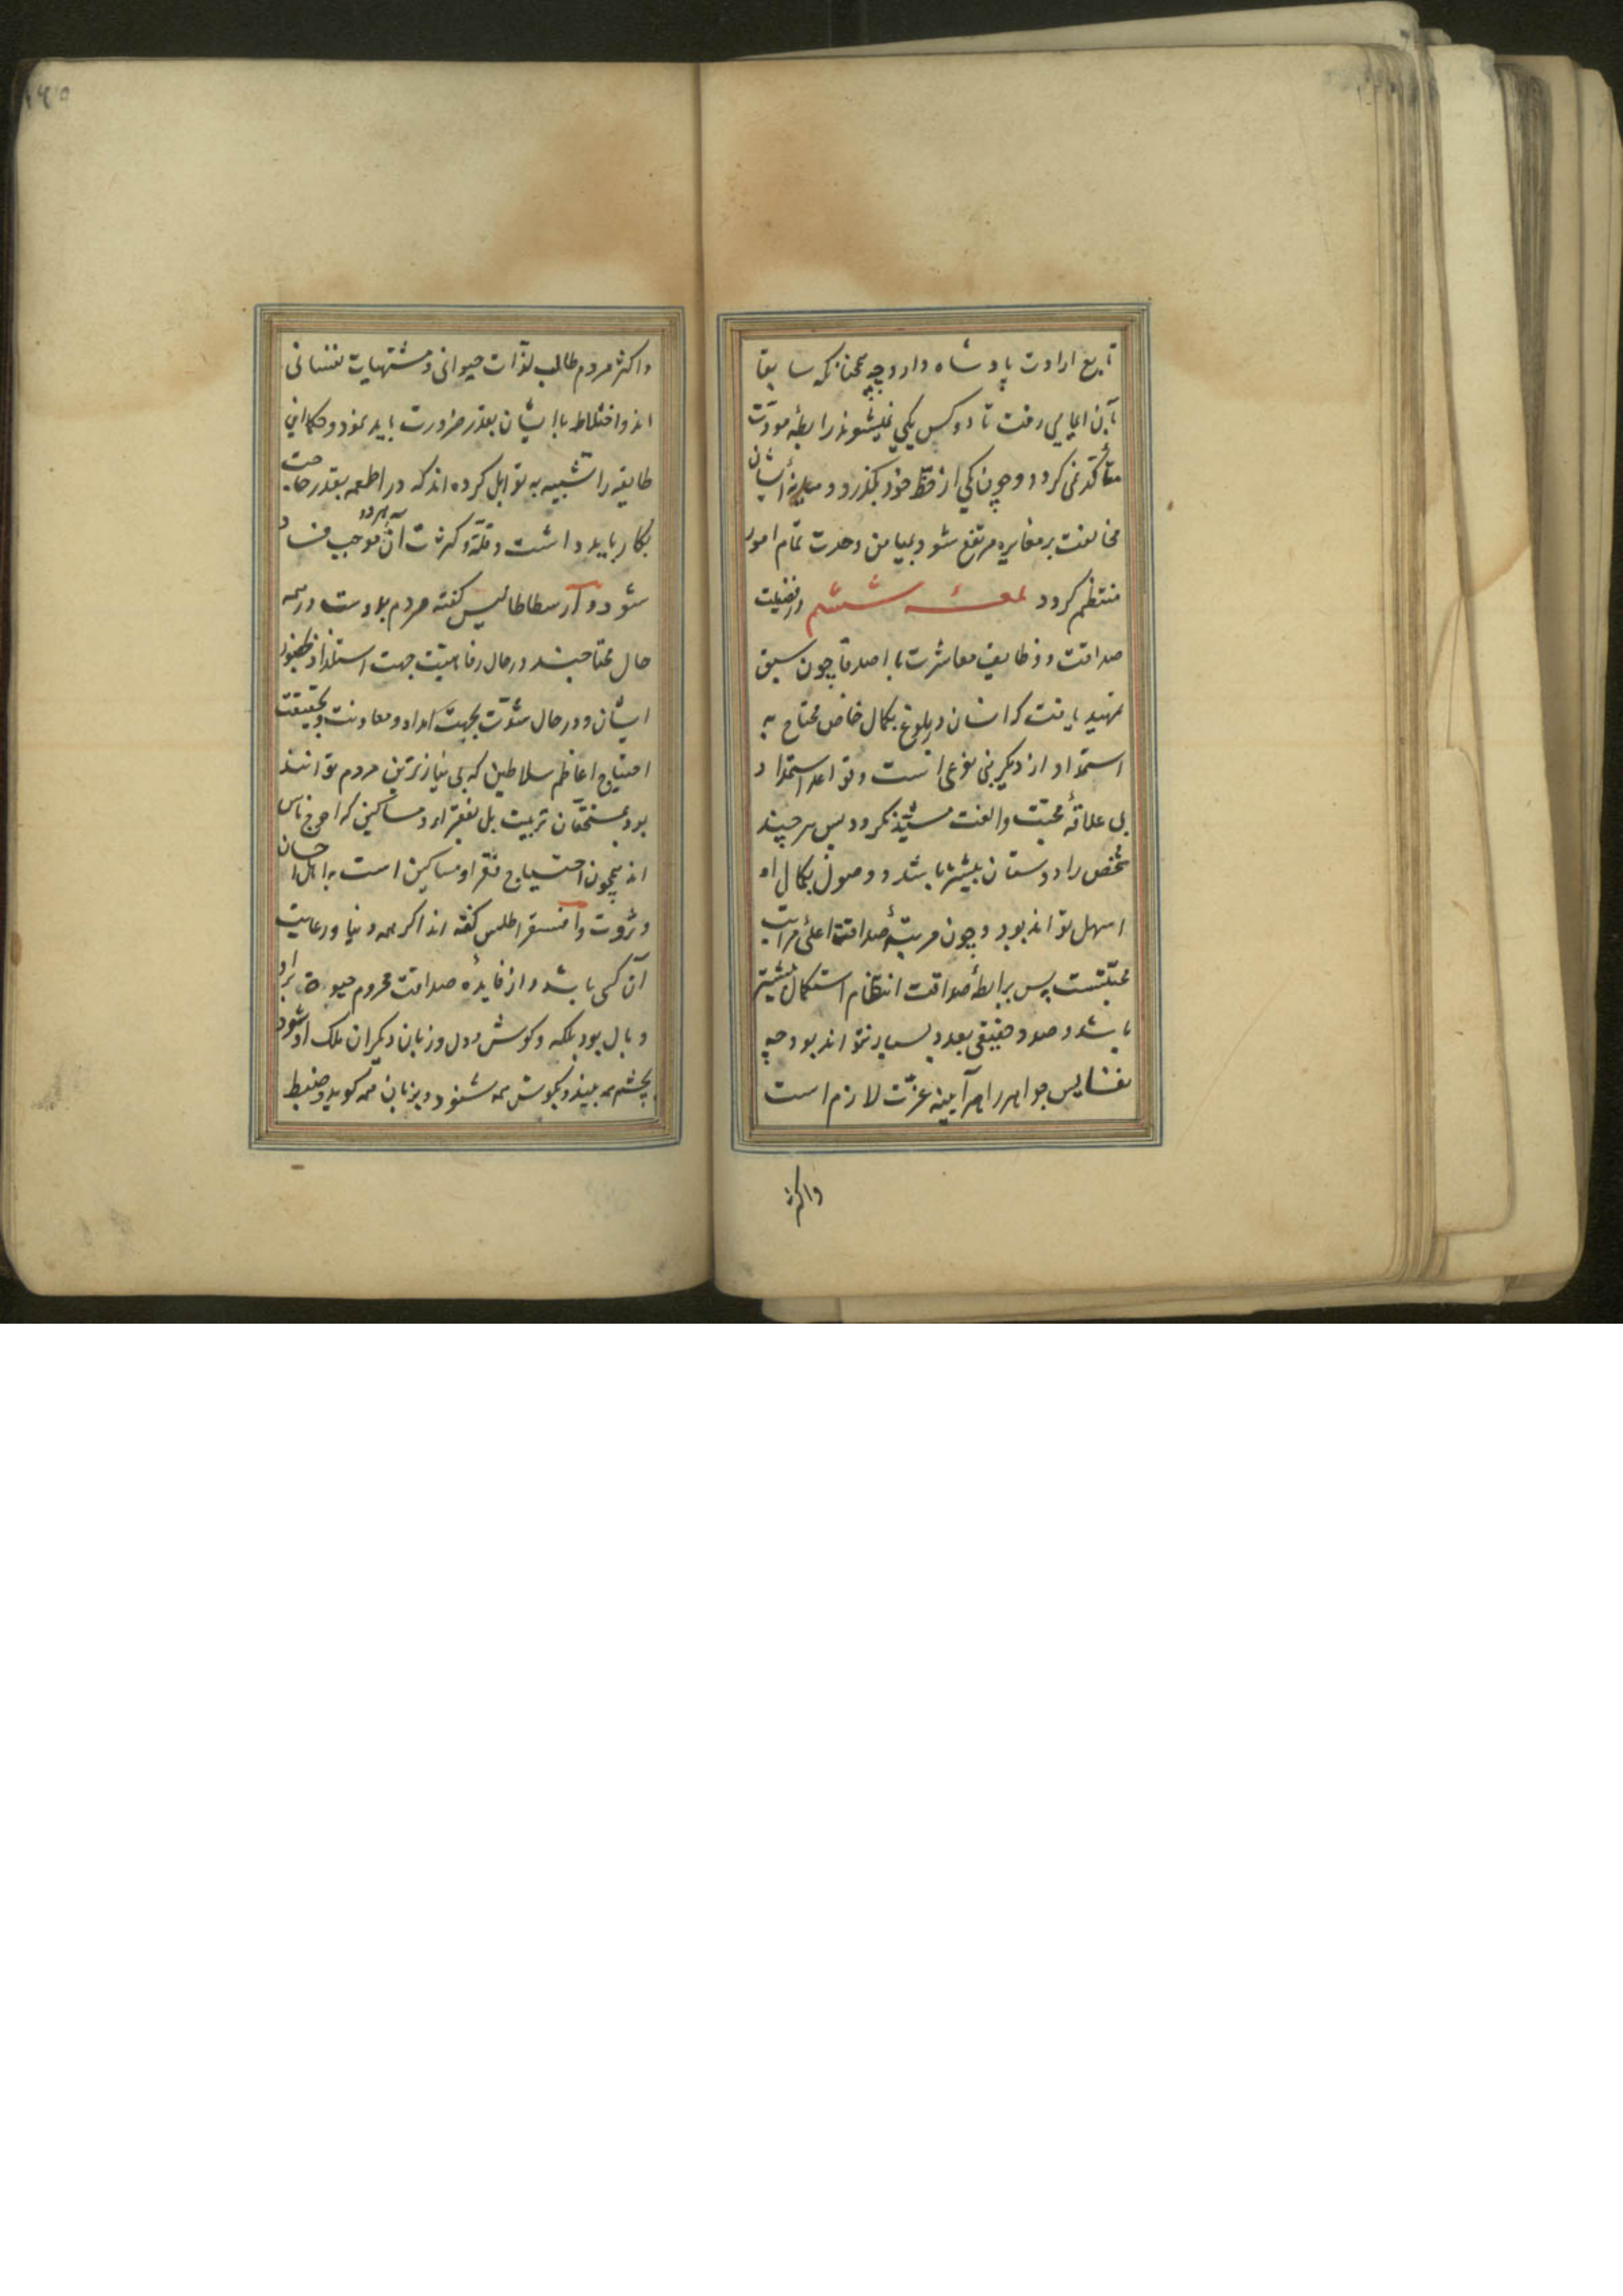 تابع ارادت پادشاه دارد چه همچنانکه سابقا
بآن ایمایی رفت تا دو کس یکی نمیشوند رابطهٔ مودّت
متأکّد نمی کردد و چون یکی از حظّ خود بکذرد و میانهٔ ایشان
مخالفت بر مغایره مرتفع شود و بمیامن وحدت تمام امور
منتظم کردد لمعهٔ ششم در فضیلت
صداقت و وظایف معاشرت با اصدقا چون سبق
تمهید یافت که انسان در بلوغ بکمال خاص محتاج به
استمداد از دیکر بنی نوعی انست و قواعد استمداد
بی علاقهٔ محبّت والفت مشیّد نکردد پس هر چند
شخص را دوستان بیشتر باشد و وصول بکمال او
اسهل تواند بود و چون مرتبهٔ صداقت اعلیٔ مراتب
محبّتست پس برابطهٔ صداقت انتظام استکمال بیشتر
باشد و صدیق حقیقی بعدد بسیار نتواند بود چه
نفایس جواهر را هر آیینه عزّت لازم است
واکثر
واکثر مردم طالب لذّات حیوانی و مشتهیات نفسانی
اند و اختلاط با ایشان بقدر ضرورت باید نمود و حکما این
طایفه را تشبیه به توابل کرده اند که در اطعمه بقدر حاجت
بکار باید داشت و قلّة و کثرت آن هر دو موجب فساد
شود و ارسطاطالیس کفته مردم بدوست در همه
حال محتاجند در حال رفاهیّت جهت استلذاذ بحضور
ایشان و در حال شدّت بجهت امداد و معاونت و بحقیقت
احتیاج اعاظم سلاطین که بی نیازترین مردم توانند
بود بمستحقّان تربیت بل بفقراء و مساکین که احوج ناس
اند همچون احتیاج فقرا و مساکین است به اهل احسان
و ثروت و انسقراطلس کفته اند اکر همه دنیا و رعایت
آن کسی باشد و از فایدهٔ صداقت محروم حیوة براو
وبال بود بلکه و کوش و دل و زبان دیکران ملک او شود
بچشم همه بیند و بکوش همه شنود و بزبان همه کوید و ضبط